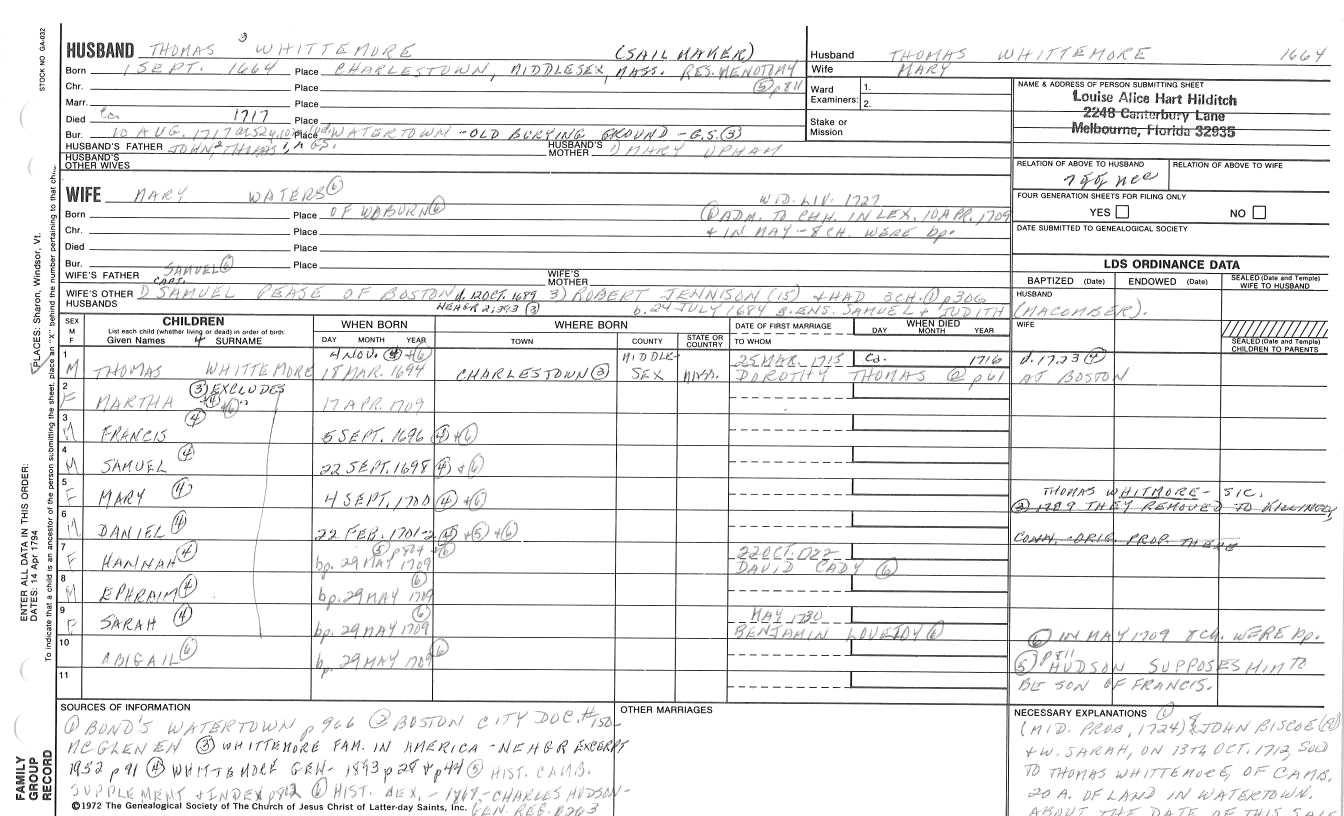 STOCK NO. GA-032
PLACES: Sharon, Windsor, Vt.
ENTER ALL DATA IN THIS ORDER:
DATES: 14 Apr 1794
To indicate that a child is an ancestor of the person submitting the sheet, place an "X" behind the number pertaining to that
FAMILY GROUP RECORD
HUSBAND THOMAS 3 WHITTEMORE (SAIL MAKER)
Born 1 SEPT. 1664 Place CHARLESTOWN, MIDDLESEX, MASS. RES. MENOTOMY
Chr. Place ⑤ p 811
Marr. Place
Died Ca 1717 Place
Bur. 10 AUG. 1717 Place WATERTOWN - OLD BURYING GROUND - G.S. ③
HUSBAND'S FATHER JOHN,2 THOMAS 1 HUSBAND'S MOTHER MARY UPHAM
HUSBAND'S OTHER WIVES
WIFE MARY WATERS ⑥ WID. LIV. 1727
Born Place OF WOBURN ⑥ ADM. TO CHH. IN LEX. 10 APR. 1709
Chr. Place + IN MAY - 8 CH. WERE bp.
Died Place
Bur. Place
WIFE'S FATHER SAMUEL ⑥ WIFE'S MOTHER
CAPT.
WIFE'S OTHER HUSBANDS SAMUEL PEASE OF BOSTON d. 12 OCT. 1689 3) ROBERT JENNISON (15) + HAD 3 CH. ① p 306
NEHGR 2:393 ③ b. 24 JULY 1684 s. ENS. SAMUEL + JUDITH
(MACOMBER).
Husband THOMAS WHITTEMORE 1664
Wife MARY
Ward Examiners: 1.
2.
Stake or Mission
NAME & ADDRESS OF PERSON SUBMITTING SHEET
Louise Alice Hart Hilditch
2248 Canterbury Lane
Melbourne, Florida 32935
RELATION OF ABOVE TO HUSBAND RELATION OF ABOVE TO WIFE
FOUR GENERATION SHEETS FOR FILING ONLY
YES NO
DATE SUBMITTED TO GENEALOGICAL SOCIETY
LDS ORDINANCE DATA
BAPTIZED (Date) ENDOWED (Date) SEALED (Date and Temple) WIFE TO HUSBAND
HUSBAND
WIFE
SEALED (Date and Temple) CHILDREN TO PARENTS
SEX M F
CHILDREN
List each child (whether living or dead) in order of birth:
Given Names 4 SURNAME
WHEN BORN
DAY MONTH YEAR
WHERE BORN
TOWN COUNTY STATE OR COUNTRY
DATE OF FIRST MARRIAGE
TO WHOM
WHEN DIED
DAY MONTH YEAR
4 NOV. ④ + ⑥ MIDDLE- 25 MAR. 1715 Ca. 1716 d. 1723 ④
1 M THOMAS WHITTEMORE 18 MAR. 1694 CHARLESTOWN ③ SEX MASS. DOROTHY THOMAS ② p 61 AT BOSTON
③ EXCLUDES
④ + ⑥
2 F MARTHA 17 APR. 1709
3 M FRANCIS ④ 5 SEPT. 1696 ④ + ⑥
4 M SAMUEL ④ 22 SEPT. 1698 ④ + ⑥
5 F MARY ④ 4 SEPT. 1700 ④ + ⑥
THOMAS WHITMORE - SIC.
③ 1709 THEY REMOVED TO KILLINGLY
6 M DANIEL ④ 22 FEB. 1701-2 ④ + ⑤ + ⑥
CONN. - ORIG. PROP. THERE
7 F HANNAH ④ bp. 29 MAY 1709 ⑤ p 824 + ⑥ 22 OCT. 1722 DAVID CADY ⑥
8 M EPHRAIM ④ bp. 29 MAY 1709 ⑥
9 F SARAH ④ bp. 29 MAY 1709 ⑥ MAY 1730 BENJAMIN LOVEJOY ⑥
10 ABIGAIL ⑥ bp. 29 MAY 1709 ⑥
11
⑥ IN MAY 1709 8 CH. WERE bp.
⑤ p 811 HUDSON SUPPOSES HIM TO
BE SON OF FRANCIS.
SOURCES OF INFORMATION
① BOND'S WATERTOWN p 966 ② BOSTON CITY DOC. # 150-
MCGLENEN ③ WHITTEMORE FAM. IN AMERICA - NEHGR EXCERPT
1952 p 91 ④ WHITTEMORE GEN - 1893 p 28 + p 44 ⑤ HIST. CAMB.
SUPPLEMENT + INDEX ⑥ HIST. LEX. - 1868 - CHARLES HUDSON -
GEN. REG. p 263
©1972 The Genealogical Society of The Church of Jesus Christ of Latter-day Saints, Inc.
OTHER MARRIAGES
NECESSARY EXPLANATIONS ①
(MID. PROB. 1724) JOHN BISCOE
+ W. SARAH, ON 13TH OCT. 1712, SOLD
TO THOMAS WHITTEMORE, OF CAMB.
20 A. OF LAND IN WATERTOWN.
ABOUT THE DATE OF THIS SALE